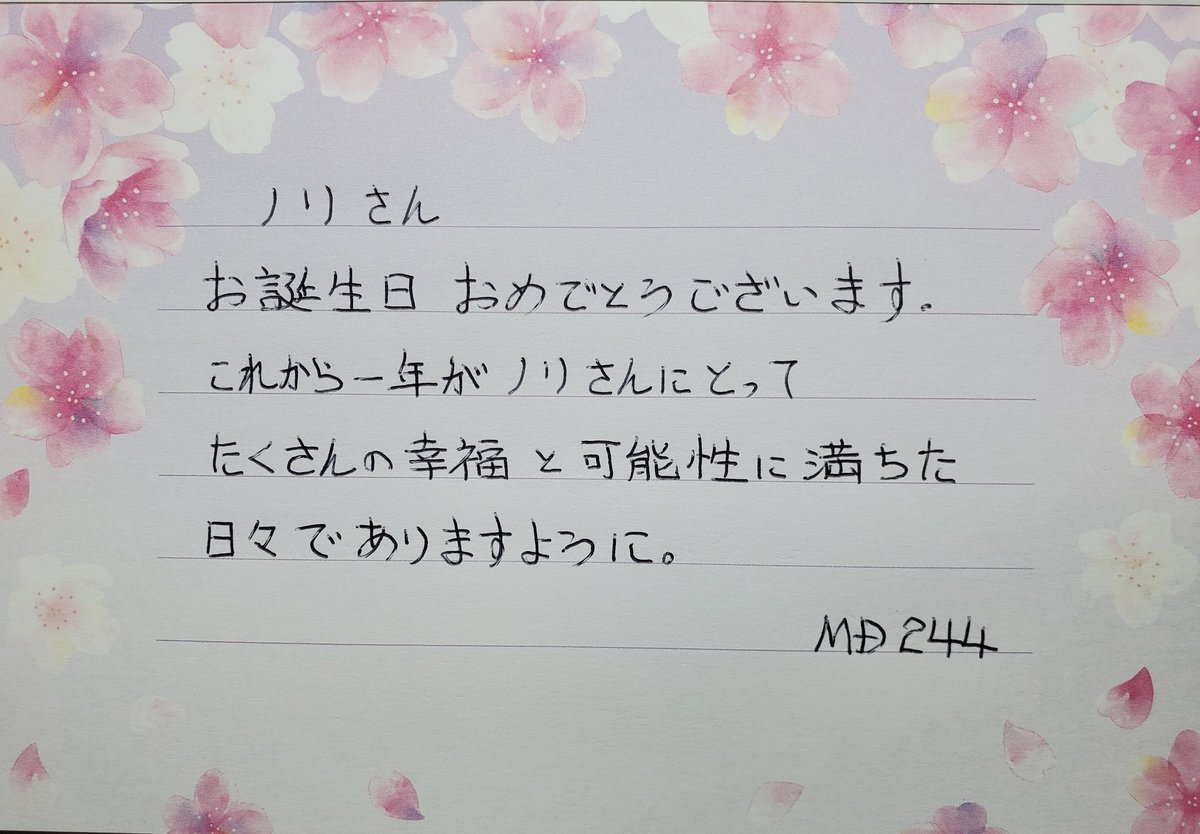 ノリさん
お誕生日 おめでとうございます。
これから一年がノリさんにとって
たくさんの幸福と可能性に満ちた
日々でありますように。
MD244